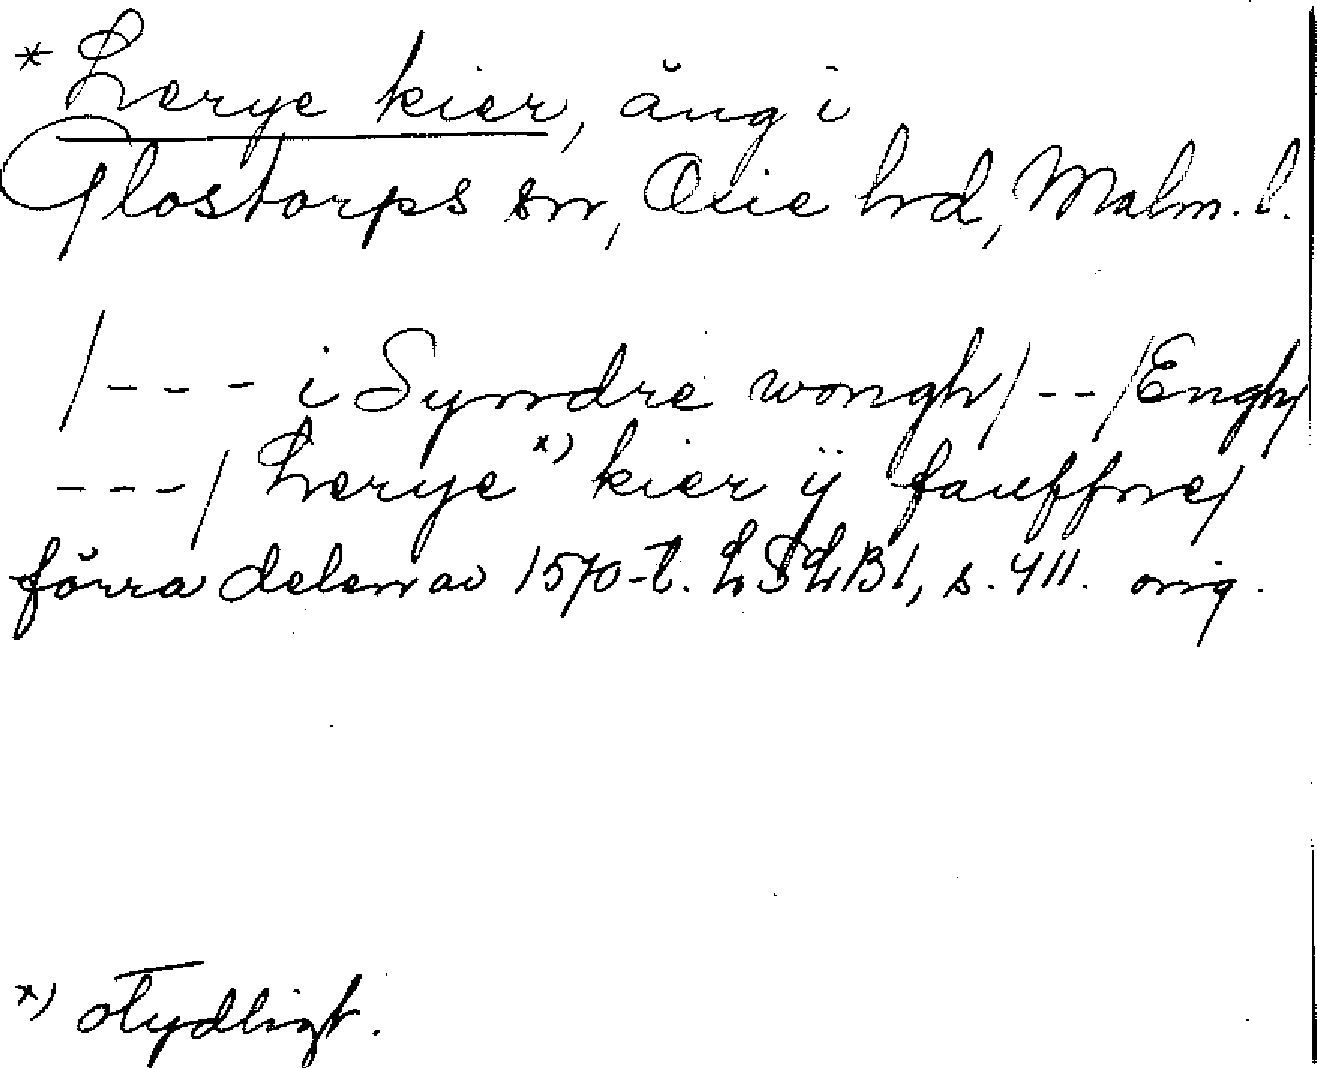 * Lerye kier, äng i
Glostorps sn, Oxie hd, Malm. l.
/--- i Syndre wongh/--/Engh/
---/ Lerye *) kier ij fauffne/
förra delen av 1570-t. LSLB1, s. 411. orig.
*) otydligt.